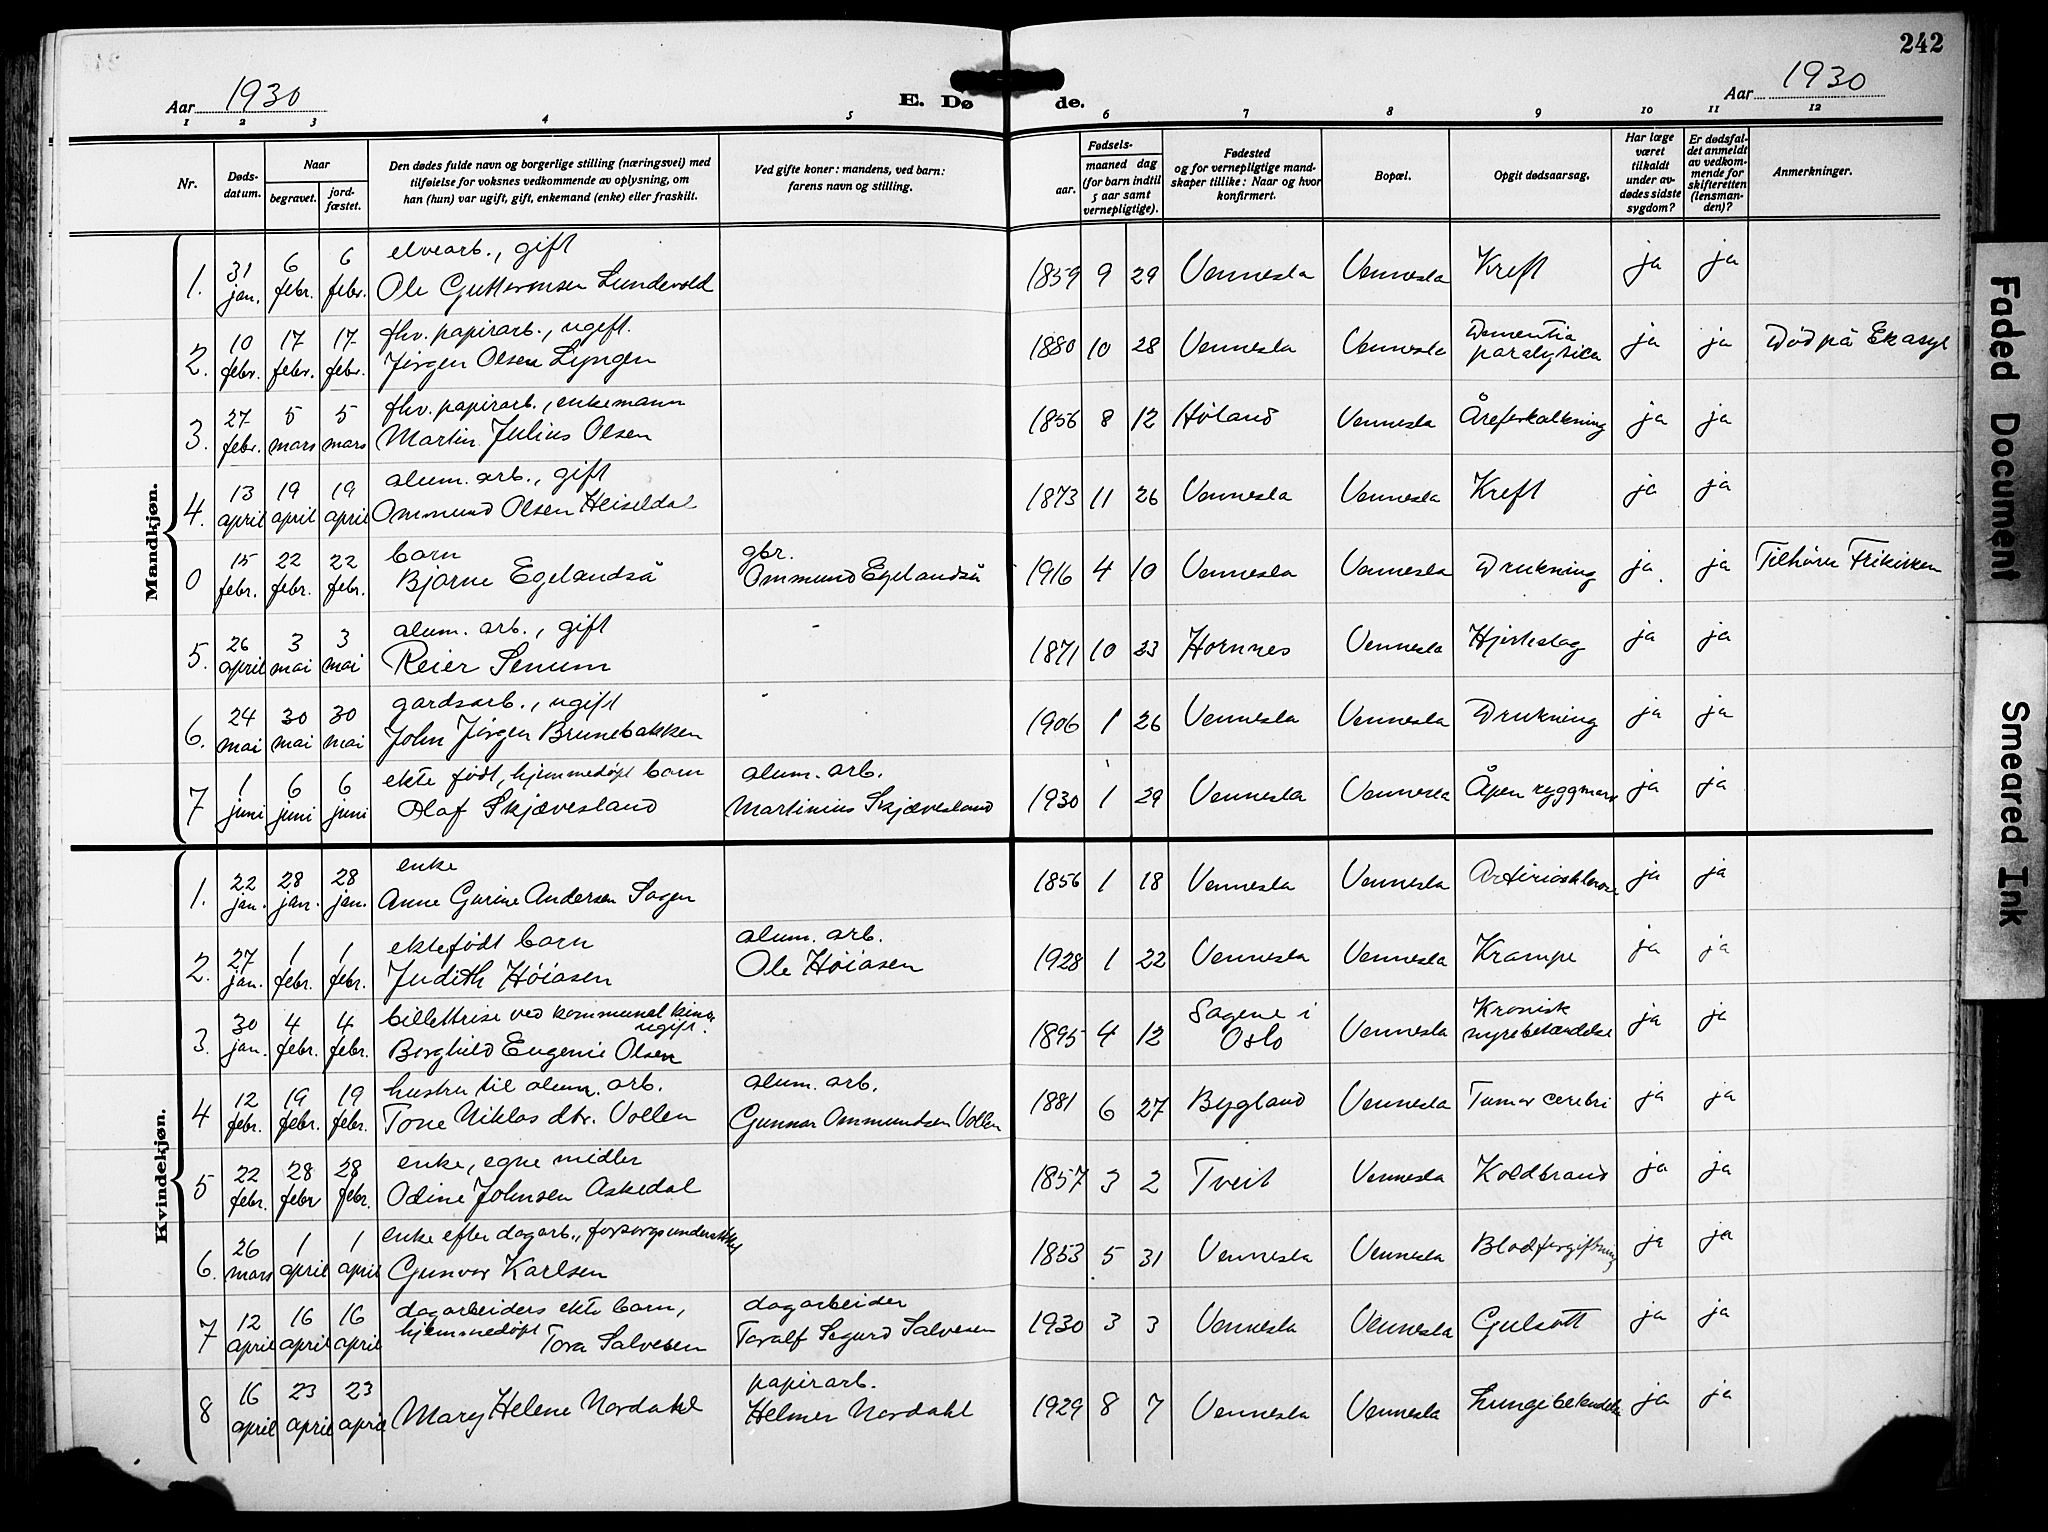 242
Aar 1930
E. Dø de.
Aar 1930
1 2 3 4 5 6 7 8 9 10 11 12
Nr.
Døds-
datum.
Naar
begravet.
jord-
fæstet.
Den dødes fulde navn og borgerlige stilling (næringsvei) med
tilføielse for voksnes vedkommende av oplysning, om
han (hun) var ugift, gift, enkemand (enke) eller fraskilt.
Ved gifte koner: mandens, ved barn:
farens navn og stilling.
Fødsels-
aar.
maaned dag
(for barn indtil
5 aar samt
vernepligtige).
Fødested
og for vernepligtige mand-
skaper tillike: Naar og hvor
konfirmert.
Bopæl.
Opgit dødsaarsag.
Har læge
været
tilkaldt
under av-
dødes sidste
sygdom?
Er dødsfal-
det anmeldt
av vedkom-
mende for
skifteretten
(lensman-
den)?
Anmerkninger.
Mandkjøn.
elvearb., gift
1. 31 jan. 6 febr. 6 febr. Ole Guttormsen Lundevold 1859 9 29 Vennesla Vennesla Kreft ja ja
fhv. papirarb., ugift.
2. 10 febr. 17 febr. 17 febr. Jørgen Olsen Lyngen 1880 10 28 Vennesla Vennesla Dementia paralytica ja ja Død på Ekasyl
fhv. papirarb., enkemann
3. 27 febr. 5 mars 5 mars Martin Julius Olsen 1856 8 12 Høland Vennesla Åreforkalkning ja ja
alum. arb., gift
4. 13 april 19 april 19 april Ommund Olsen Heiseldal 1873 11 26 Vennesla Vennesla Kreft ja ja
barn gbr.
0 15 febr. 22 febr. 22 febr. Bjarne Egelandså Ommund Egelandså 1916 4 10 Vennesla Vennesla Drukning ja ja Tilhører Frikirken
alum. arb., gift
5. 26 april 3 mai 3 mai Reier Senum 1871 10 23 Hornnes Vennesla Hjerteslag ja ja
gardsarb., ugift
6. 24 mai 30 mai 30 mai John Jørgen Brunebakken 1906 1 26 Vennesla Vennesla Drukning ja ja
ekte født, hjemmedøpt barn alum. arb.
7 1 juni 6 juni 6 juni Olaf Skjævesland Martinius Skjævesland 1930 1 29 Vennesla Vennesla Åpen ryggmarv ja ja
Kvindekjøn.
enke
1. 22 jan. 28 jan. 28 jan. Anne Gurine Andersen Sagen 1856 1 18 Vennesla Vennesla ja ja
ektefødt barn alum. arb.
2. 27 jan. 1 febr. 1 febr. Judith Høiåsen Ole Høiåsen 1928 1 22 Vennesla Vennesla Krampe ja ja
billettrise ved kommunal kino ugift.
3. 30 jan. 4 febr. 4 febr. Borghild Eugenie Olsen 1895 4 12 Sagene i Oslo Vennesla Kronisk nyrebetændelse ja ja
hustru til alum. arb. alum. arb.
4 12 febr. 19 febr. 19 febr. Tone Niklas dtr. Vollen Gunnar Ommundsen Vollen 1881 6 27 Bygland Vennesla Tumor cerebri ja ja
enke, egne midler
5 22 febr. 28 febr 28 febr. Odine Johnsen Askedal 1857 3 2 Tveit Vennesla Koldbrand ja ja
enke efter dagarb., forsorgsunderstøttet
6. 26 mars 1 april 1 april Gunvor Karlsen 1853 5 31 Vennesla Vennesla Blodforgiftning ja ja
dagarbeiders ekte barn, dagarbeider
hjemmedøpt
7 12 april 16 april 16 april Tora Salvesen Toralf Sigurd Salvesen 1930 3 3 Vennesla Vennesla Gulsott ja ja
papirarb.
8 16 april 23 april 23 april Mary Helene Nordahl Helmer Nordahl 1929 8 7 Vennesla Vennesla Lungebetendelse ja ja
Faded Document
Smeared Ink